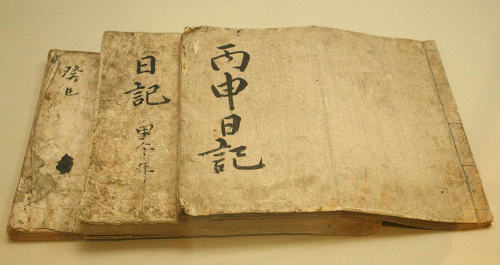 丙申日記
日記
甲午年
癸巳